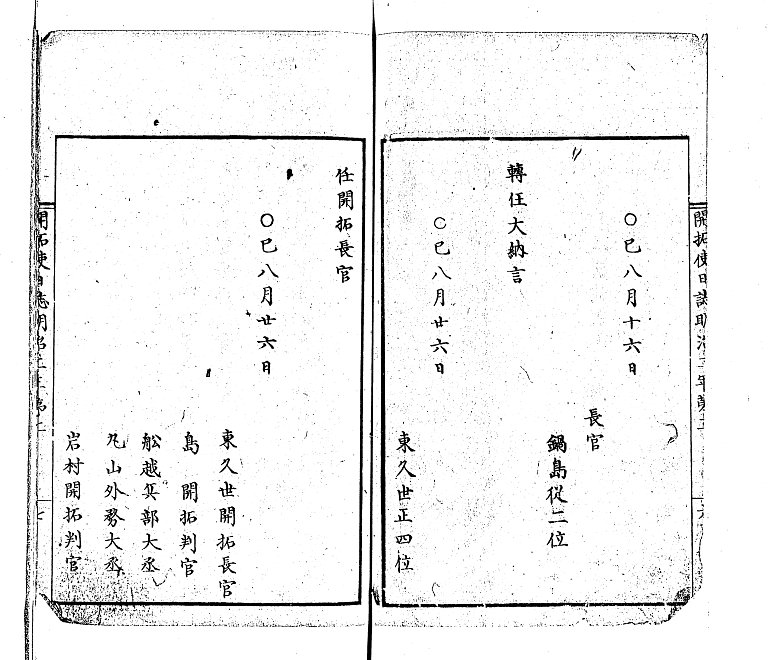 〇巳八月十六日
長官
鍋島従二位
轉任大納言
〇巳八月廿六日
東久世正四位
任開拓長官
〇巳八月廿六日
東久世開拓長官
島 開拓判官
舩越兵部大丞
丸山外務大丞
岩村開拓判官
開拓使日誌明治